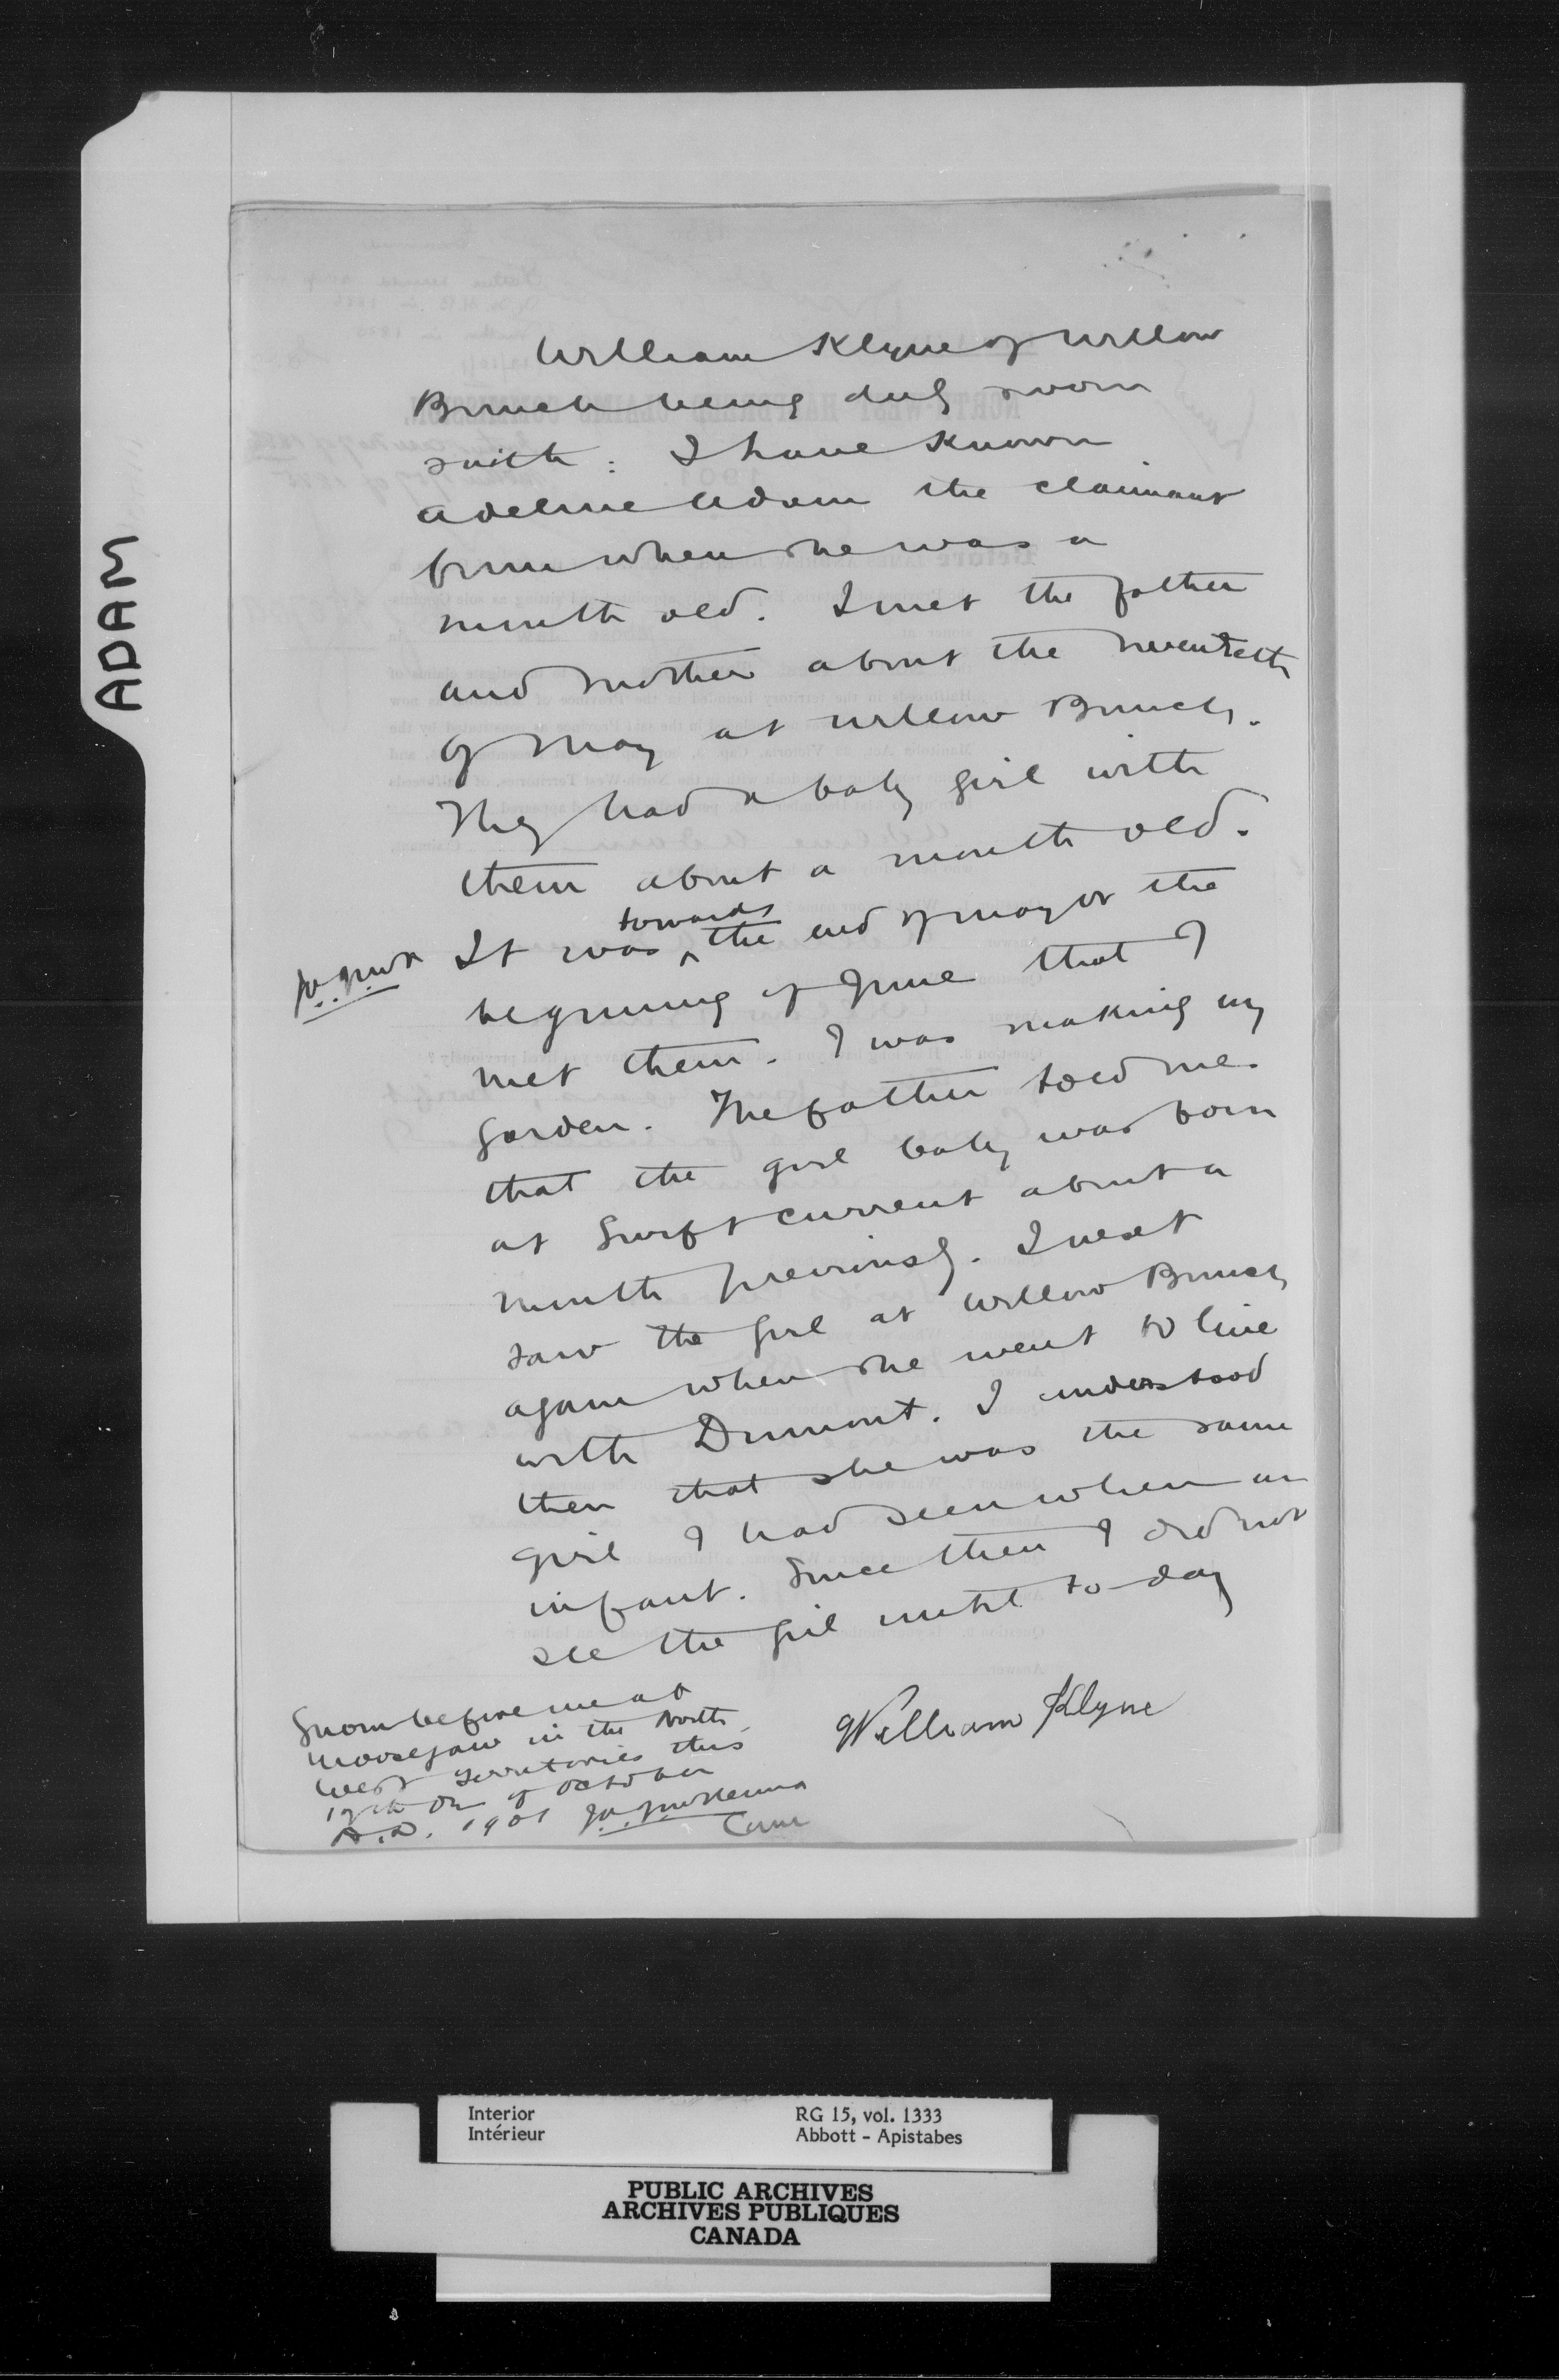 ADAM
William Klyne of Willow
Bunch being duly sworn
saith: I have known
Adeline Adam the claimant
from when she was a
month old. I met the father
and mother about the
of May at Willow Bunch.
They had a baby girl with
them about a month old.
towards
It was ^ the end of May or the
beginning of June that I
met them. I was making my
garden. The father told me
that the girl baby was born
at Swift Current about a
month previously. I next
saw the girl at Willow Bunch
again when she went to live
with Dumont. I understood
then that she was the same
girl I had seen when an
infant. Since then I did not
see the girl until to-day
William Klyne
Sworn before me at
Moosejaw in the North
West Territories this
day of October
A.D. 1901 J.A.J. McKenna
Com
Interior
Intérieur
RG 15, vol. 1333
Abbott - Apistabes
PUBLIC ARCHIVES
ARCHIVES PUBLIQUES
CANADA